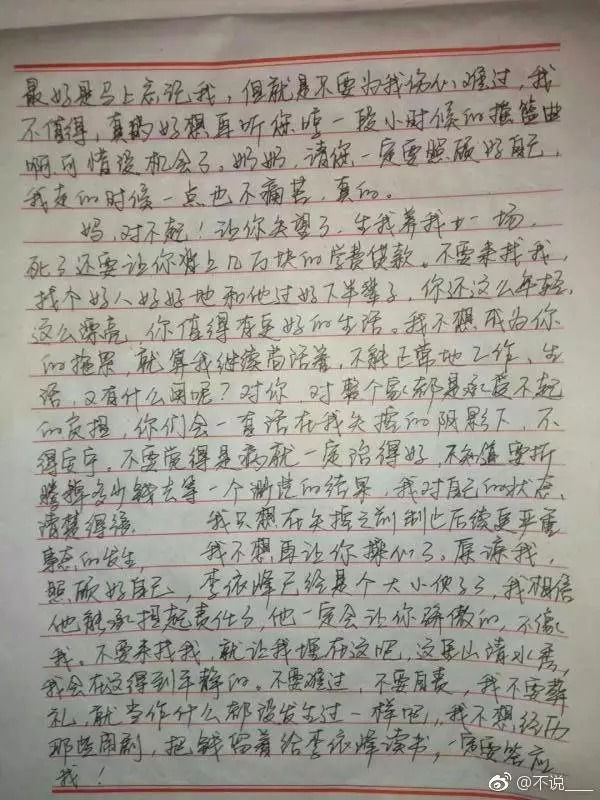 最好是马上忘记我，但就是不要为我伤心难过，我
不值得，真的好想再听您哼一段小时候的摇篮曲
啊可惜没机会了。奶奶，请您一定要照顾好自己，
我走的时候一点也不痛苦，真的。
妈，对不起！让你失望了，生我养我一场，
死了还要让你难上几万块的学费贷款。不要来找我，
找个好人好好地和他过好下半辈子，你还这么年轻，
这么漂亮，你值得有更好的生活。我不想成为你
的拖累，就算我继续苟活着，不能正常地工作、生
活，又有什么用呢？对你，对整个家都是承受不起
的负担，你们会一直活在我失控的阴影下，不
得安宁。不要觉得是病就一定治得好，不知道要折
腾掉多少钱去等一个渺茫的结果，我对自己的状态
清楚得很 我只想在失控之前制止后续更严重
事态的发生， 我不想再让你操心了。原谅我，
照顾好自己，李依峰已经是个大小伙子了，我相信
他能承担起责任了，他一定会让你骄傲的，不像
我。不要来找我，就让我埋在这吧，这里山清水秀，
我会在这得到平静的。不要难过，不要自责，我不要葬
礼，就当作什么都没发生过一样吧，我不想经历
那些闹剧，把钱留着给李依峰读书，一定要答应
我！
@不说___